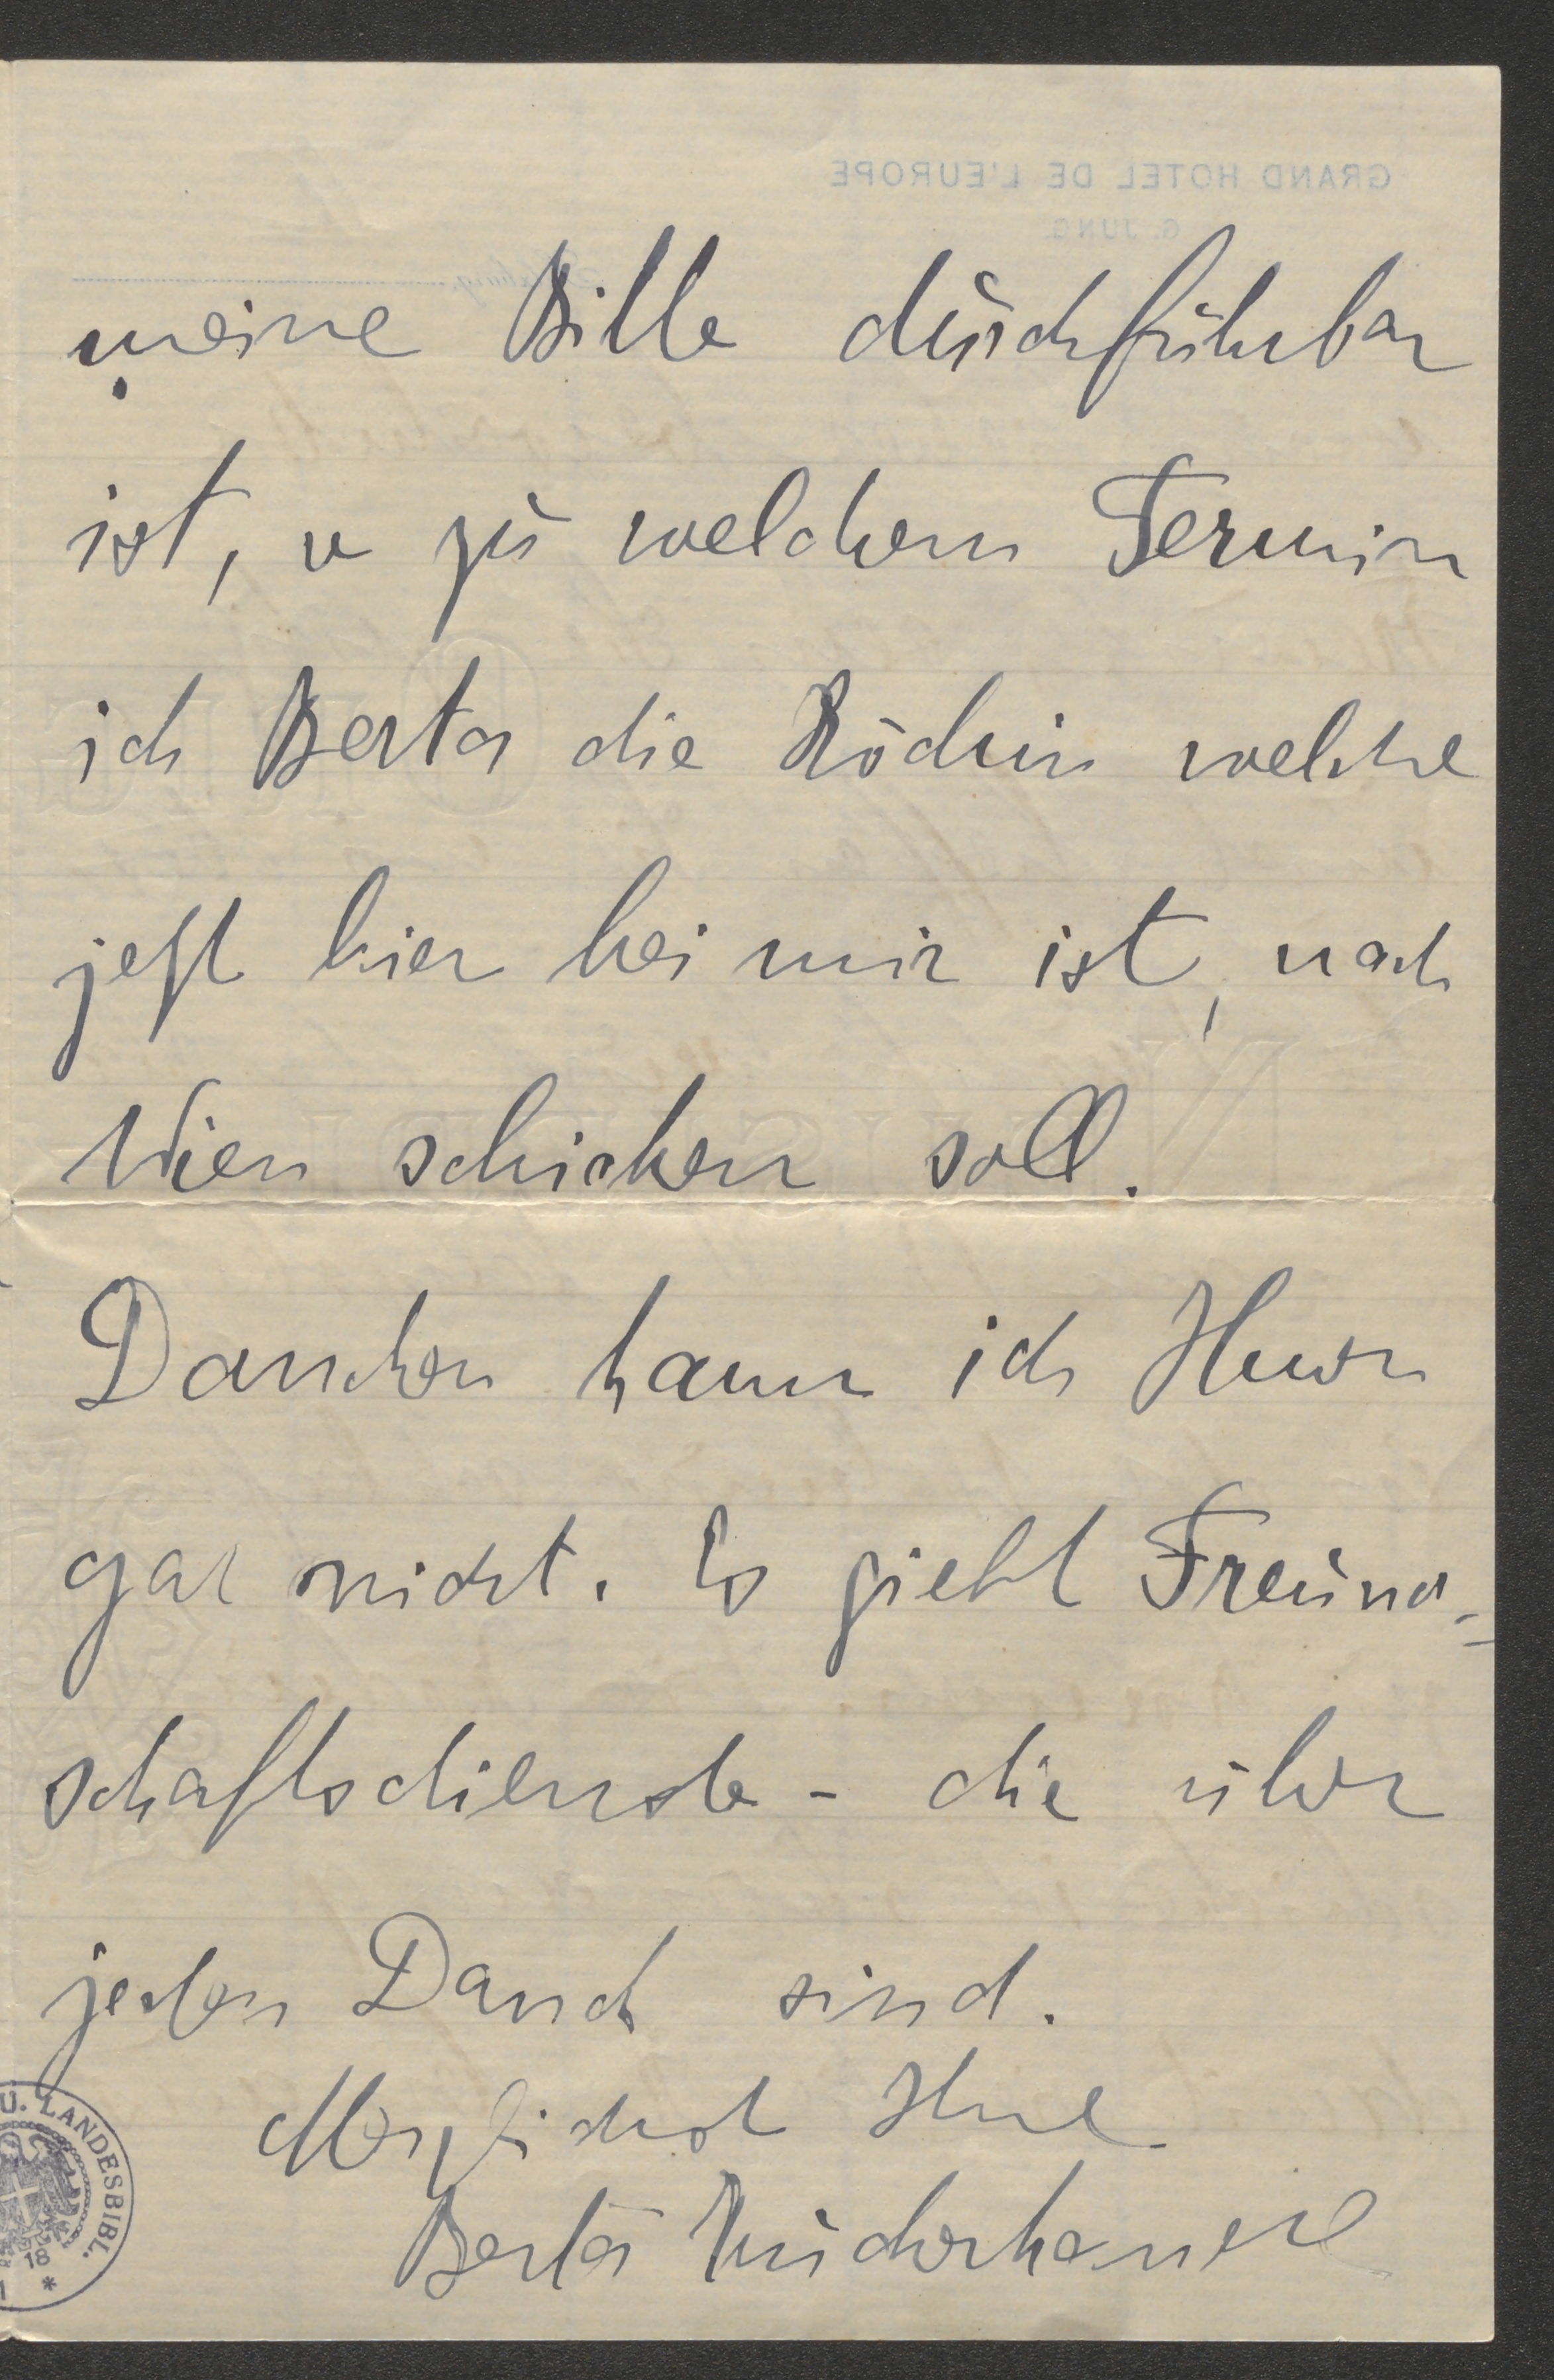 GRAND HOTEL DE L'EUROPE
G. JUNG.
meine Bitte durchführbar
ist, u zu welchem Termin
ich Berta die Köchin welche
jetzt hier bei mir ist, nach
Wien schicken soll.
Dancken kann ich Ihnen
gar nicht. Es giebt Freund-
schaftsdienste - die über
jeden Danck sind.
Herzlichst Ihre
Berta Zuckerkandl
U. LANDESBIBL.
18